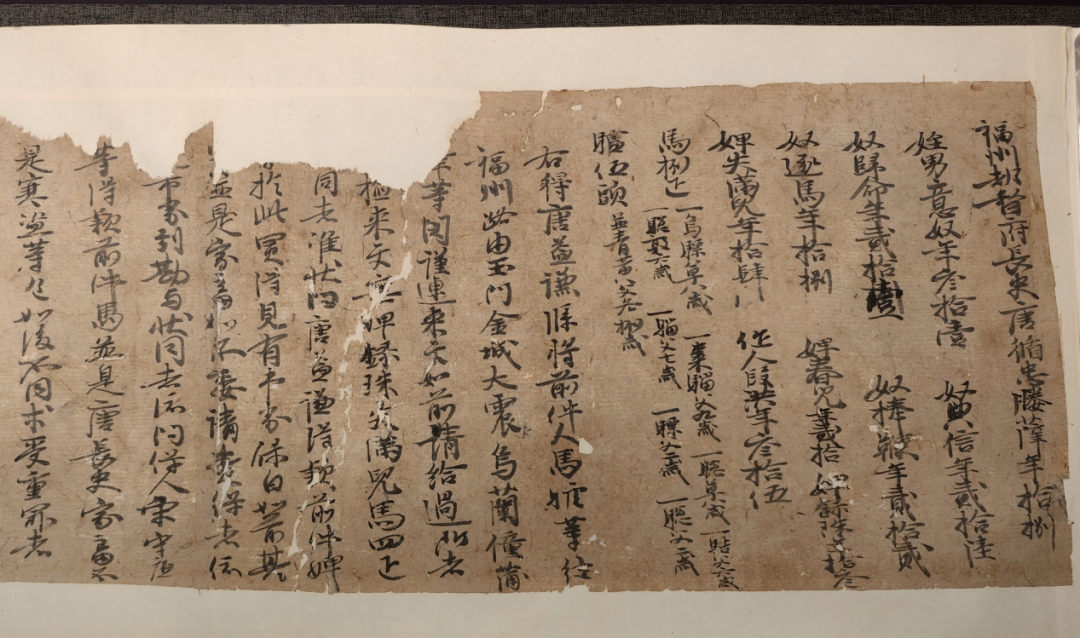 福州都督府長史唐循忠媵薛年拾捌
姪男意奴年叁拾壹 奴典信年貳拾陸
奴歸命年貳拾壹 奴捧鞭年貳拾貳
奴逐馬年拾捌 婢春兒年貳拾 婢綠珠年拾叁
婢失滿兒年拾肆 作人段洪年叁拾伍
馬捌疋 一烏騾草八歲 一騮父六歲 一騮草八歲
一驃敦六歲 一騮父七歲 一騾父二歲 一驄父二歲
驢伍頭 並青黃父各捌歲
右得唐益謙牒將前件人馬驢等往
福州路由玉門金城大震烏蘭僮蒲
等關謹連來文如前請給過所者
檢來文無婢綠珠失滿兒馬四疋
同者准狀問唐益謙得款前件婢
於此買得見有市券保白如前其
並是家畜如不委請責保者依
市券到勘與狀同者依問保人宋守廉
等得款前件馬並是唐長史家畜不
是寒盜等色如後不同求受重罪者